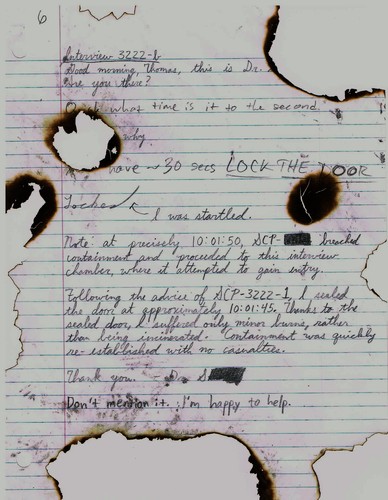 6
Interview 3222-b
Good morning, Thomas, this is Dr.
Are you there?
what time is it to the second.
why
have ~30 secs LOCK THE DOOR
Locked
I was startled.
Note: at precisely 10:01:50, SCP- breached
containment and proceeded to this interview
chamber, where it attempted to gain entry.
Following the advice of SCP-3222-1, I sealed
the door at approximately 10:01:45. Thanks to the
sealed door, I suffered only minor burns, rather
than being incinerated. Containment was quickly
re-established with no casualties.
Thank you. - Dr. S
Don't mention it. I'm happy to help.